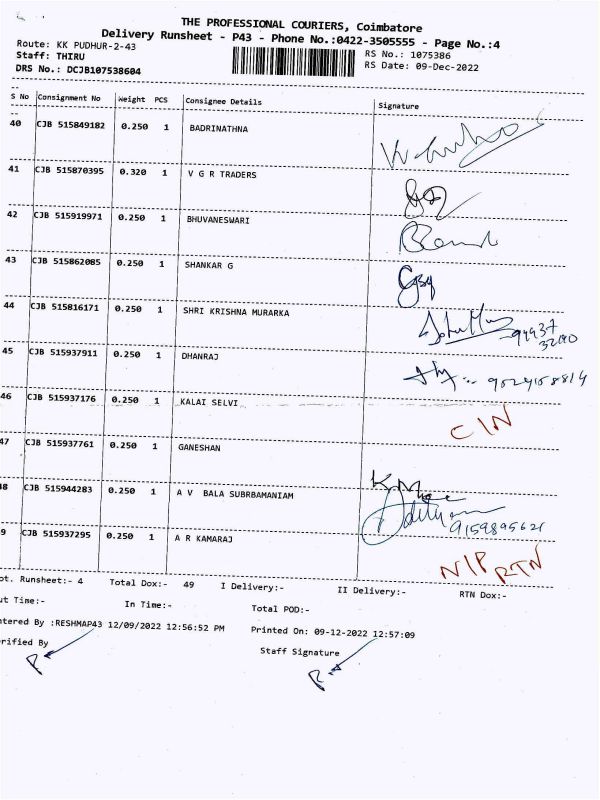 THE PROFESSIONAL COURIERS, Coimbatore
Delivery Runsheet - P43 - Phone No.:0422-3505555 - Page No.:4
Route: KK PUDHUR-2-43
RS No.: 1075386
Staff: THIRU
RS Date: 09-Dec-2022
DRS No.: DCJB107538604
S No Consignment No Weight PCS Consignee Details Signature
40 CJB 515849182 0.250 1 BADRINATHNA
41 CJB 515870395 0.320 1 V G R TRADERS
42 CJB 515919971 0.250 1 BHUVANESWARI
43 CJB 515862085 0.250 1 SHANKAR G
44 CJB 515816171 0.250 1 SHRI KRISHNA MURARKA
45 CJB 515937911 0.250 1 DHANRAJ
46 CJB 515937176 0.250 1 KALAI SELVI C/N
47 CJB 515937761 0.250 1 GANESHAN
48 CJB 515944283 0.250 1 A V BALA SUBRBAMANIAM 9159895621
9 CJB 515937295 0.250 1 A R KAMARAJ N/P RTN
ot. Runsheet:- 4 Total Dox:- 49 I Delivery:- II Delivery:- RTN Dox:-
ut Time:- In Time:- Total POD:-
ntered By :RESHMAP43 12/09/2022 12:56:52 PM Printed On: 09-12-2022 12:57:09
erified By Staff Signature